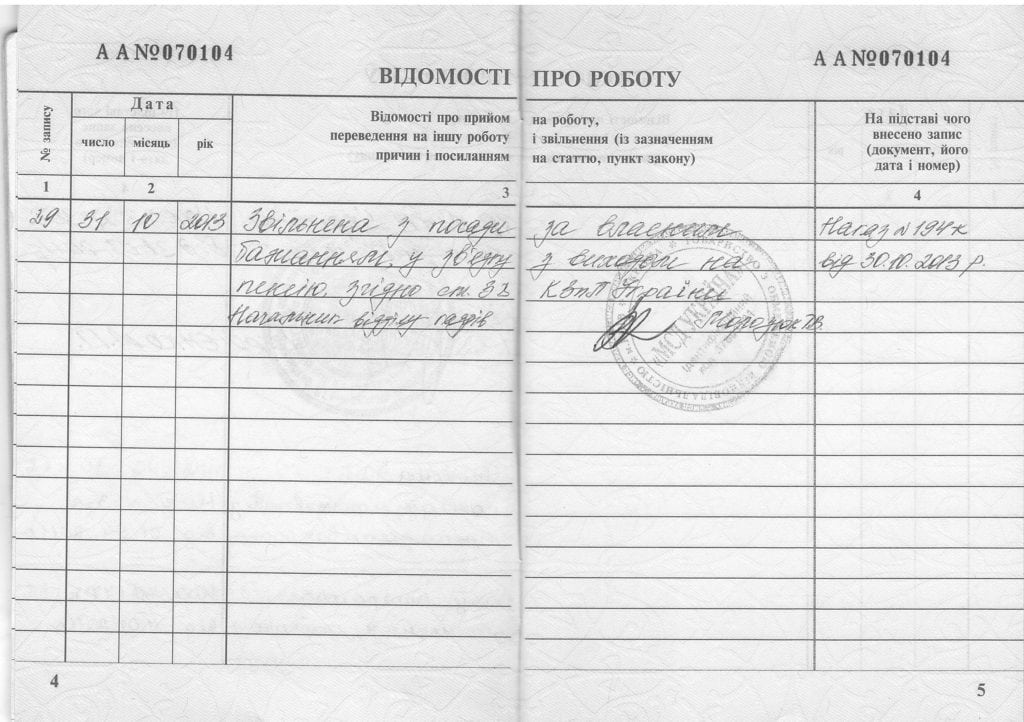 АА№070104
АА№070104
ВІДОМОСТІ ПРО РОБОТУ
№ запису
Дата
число місяць рік
Відомості про прийом на роботу,
переведення на іншу роботу і звільнення (із зазначенням
причин і посиланням на статтю, пункт закону)
На підставі чого
внесено запис
(документ, його
дата і номер)
1 2 3 4
29 31 10 2013 Звільнена з посади за власним Наказ № 194к
бажанням у зв'язку з виходом на від 30.10.2013 р.
пенсію, згідно ст. 38 КЗпП України
Начальник відділу кадрів
4
5